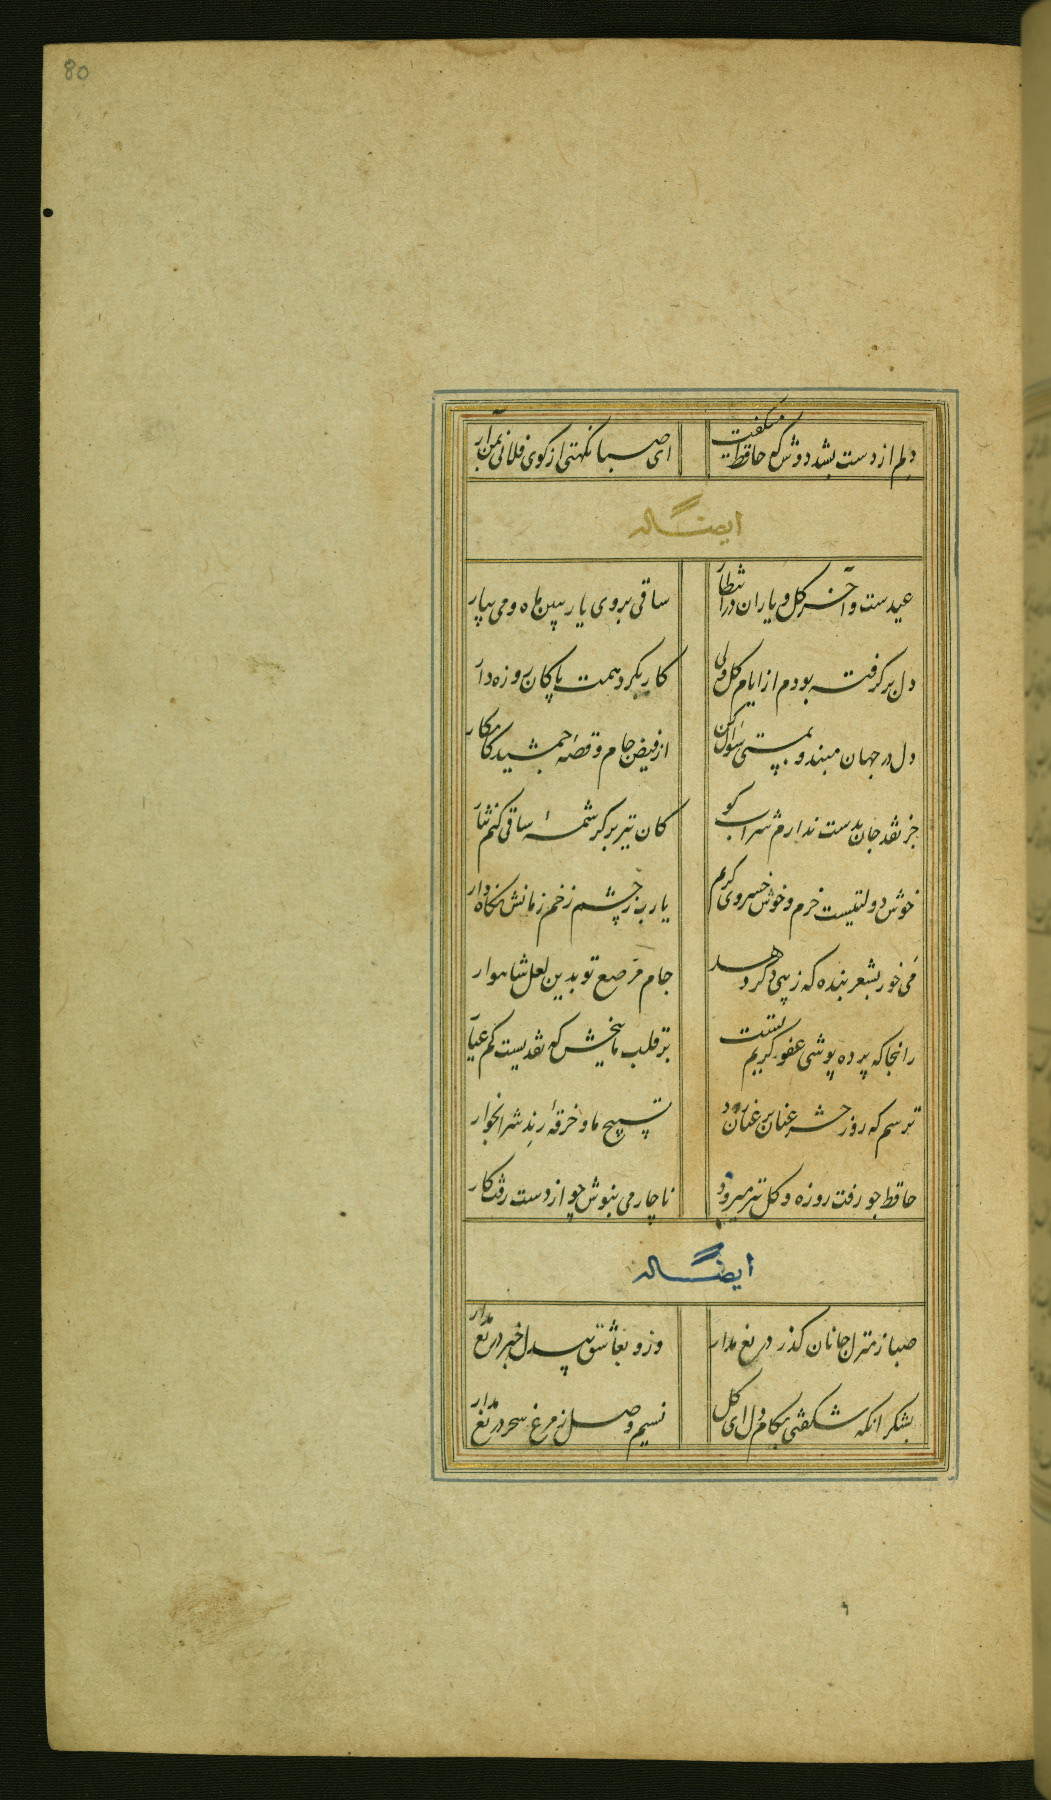 80
دلم از دست بشد دوش که حافظ میگفت ای صبا نکهتی از کوی فلانی بمن آر
ایضا له
عیدست و آخر کل و یاران در انتظار ساقی بروی یار ببین ماه و می بیار
دل برکرفته بودم از ایام کل ولی کاری بکرد همت پاکان روزه دار
دل در جهان مبند و بمستی سؤال کن از فیض جام و قصهٔ جمشید کامکار
جز نقد جان بدست ندارم شراب کو کان نیز بر کرشمهٔ ساقی کنم نثار
خوش دولتیست خرم و خوش خسروی کریم یا رب ز چشم زخم زمانش نکاه دار
می خور بشعر بنده که زیبی دکر دهد جام مرصع تو بدین لعل شاهوار
زانجا که پرده پوشی عفو کریم تست بر قلب ما ببخش که نقدیست کم عیار
ترسم که روز حشر عنان بر عنان رود تسبیح ما و خرقهٔ رند شرابخوار
حافظ چو رفت روزه و کل نیز میرود ناچار می بنوش چو از دست رفت کار
ایضا له
صبا ز منزل جانان کذر دریغ مدار وزو بعاشق بیدل خبر دریغ مدار
بشکر آنکه شکفتی بکام دل ای کل نسیم وصل ز مرغ سحر دریغ مدار